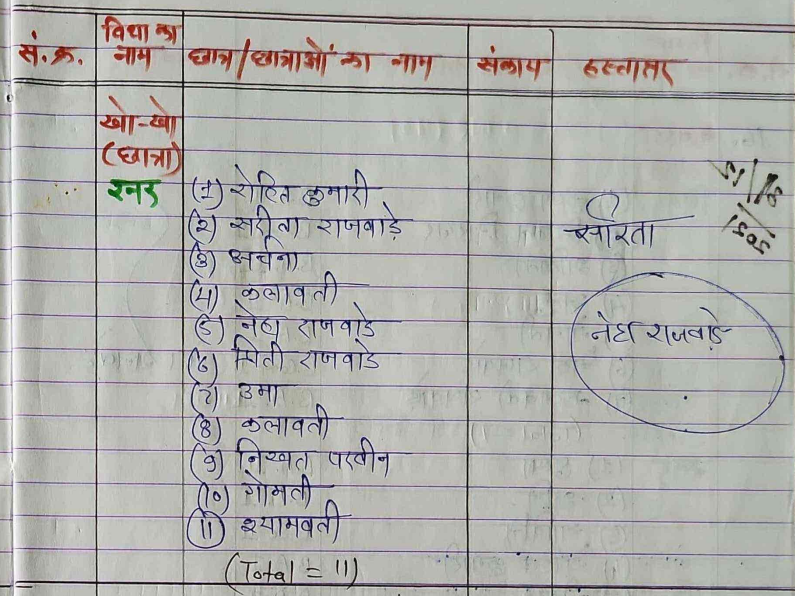 सं.क्र. विधा का नाम छात्र/छात्राओं का नाम संकाय हस्ताक्षर
खो-खो
(छात्रा)
रनर (1) रोहित कुमारी
(2) सरीता राजवाड़े सरिता
(3) अर्चना
(4) कलावती
(5) नेहा राजवाड़े नेहा राजवाड़े
(6) मिती राजवाड़े
(7) उमा
(8) कलावती
(9) निखत परवीन
(10) गोमती
(11) श्यामवती
(Total = 11)